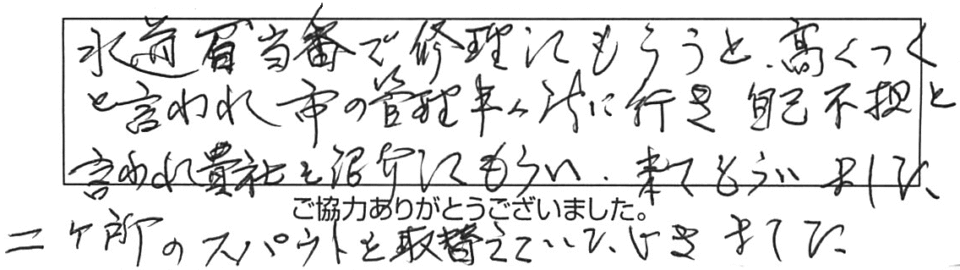 水道局当番で修理してもらうと、高くつく
と言われ市の管理事ム所に行き自己不担と
言われ貴社を紹介してもらい、来てもらいました、
ご協力ありがとうございました。
二ヶ所のスパウトを取替えていただきました